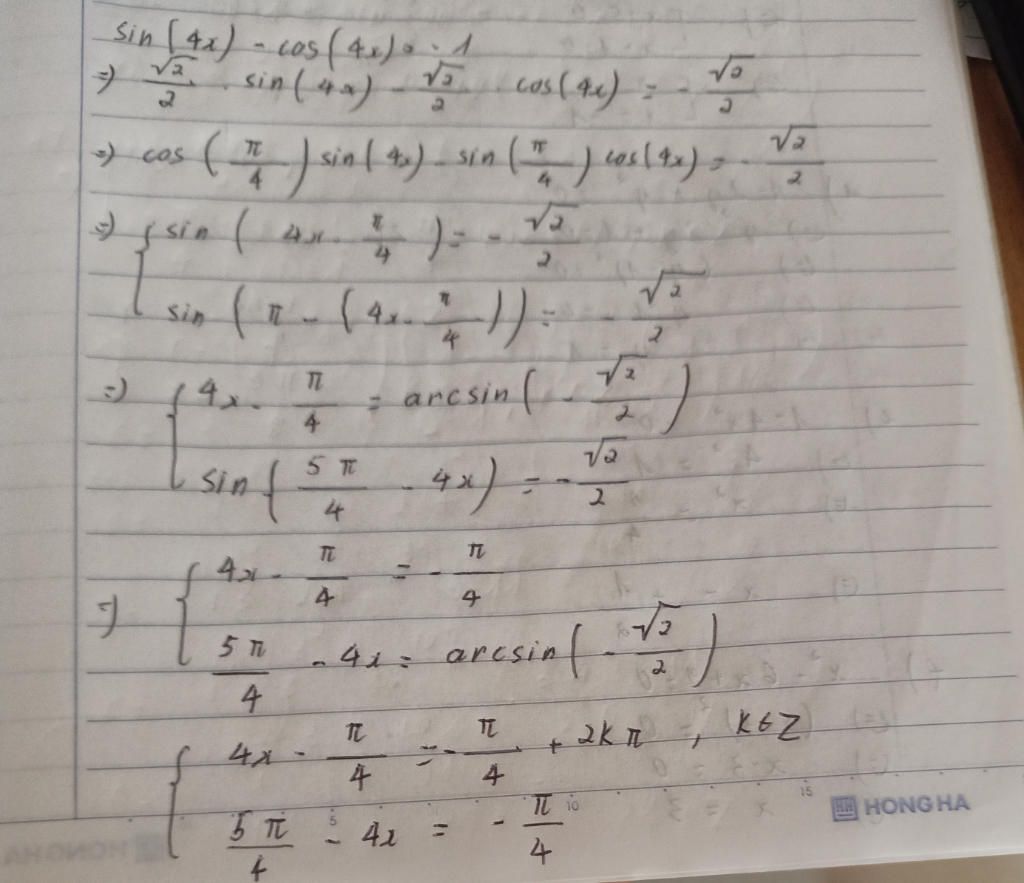 sin(4x) - cos(4x) = -1
=) √2/2 . sin(4x) - √2/2 . cos(4x) = - √2/2
=) cos(π/4) sin(4x) - sin(π/4) cos(4x) = - √2/2
=) { sin(4x - π/4) = - √2/2
sin(π - (4x - π/4)) = - √2/2
=) { 4x - π/4 = arcsin(- √2/2)
sin(5π/4 - 4x) = - √2/2
=) { 4x - π/4 = - π/4
5π/4 - 4x = arcsin(- √2/2)
{ 4x - π/4 = - π/4 + 2kπ, k∈Z
5π/4 - 4x = - π/4
5 10 15
HONG HA